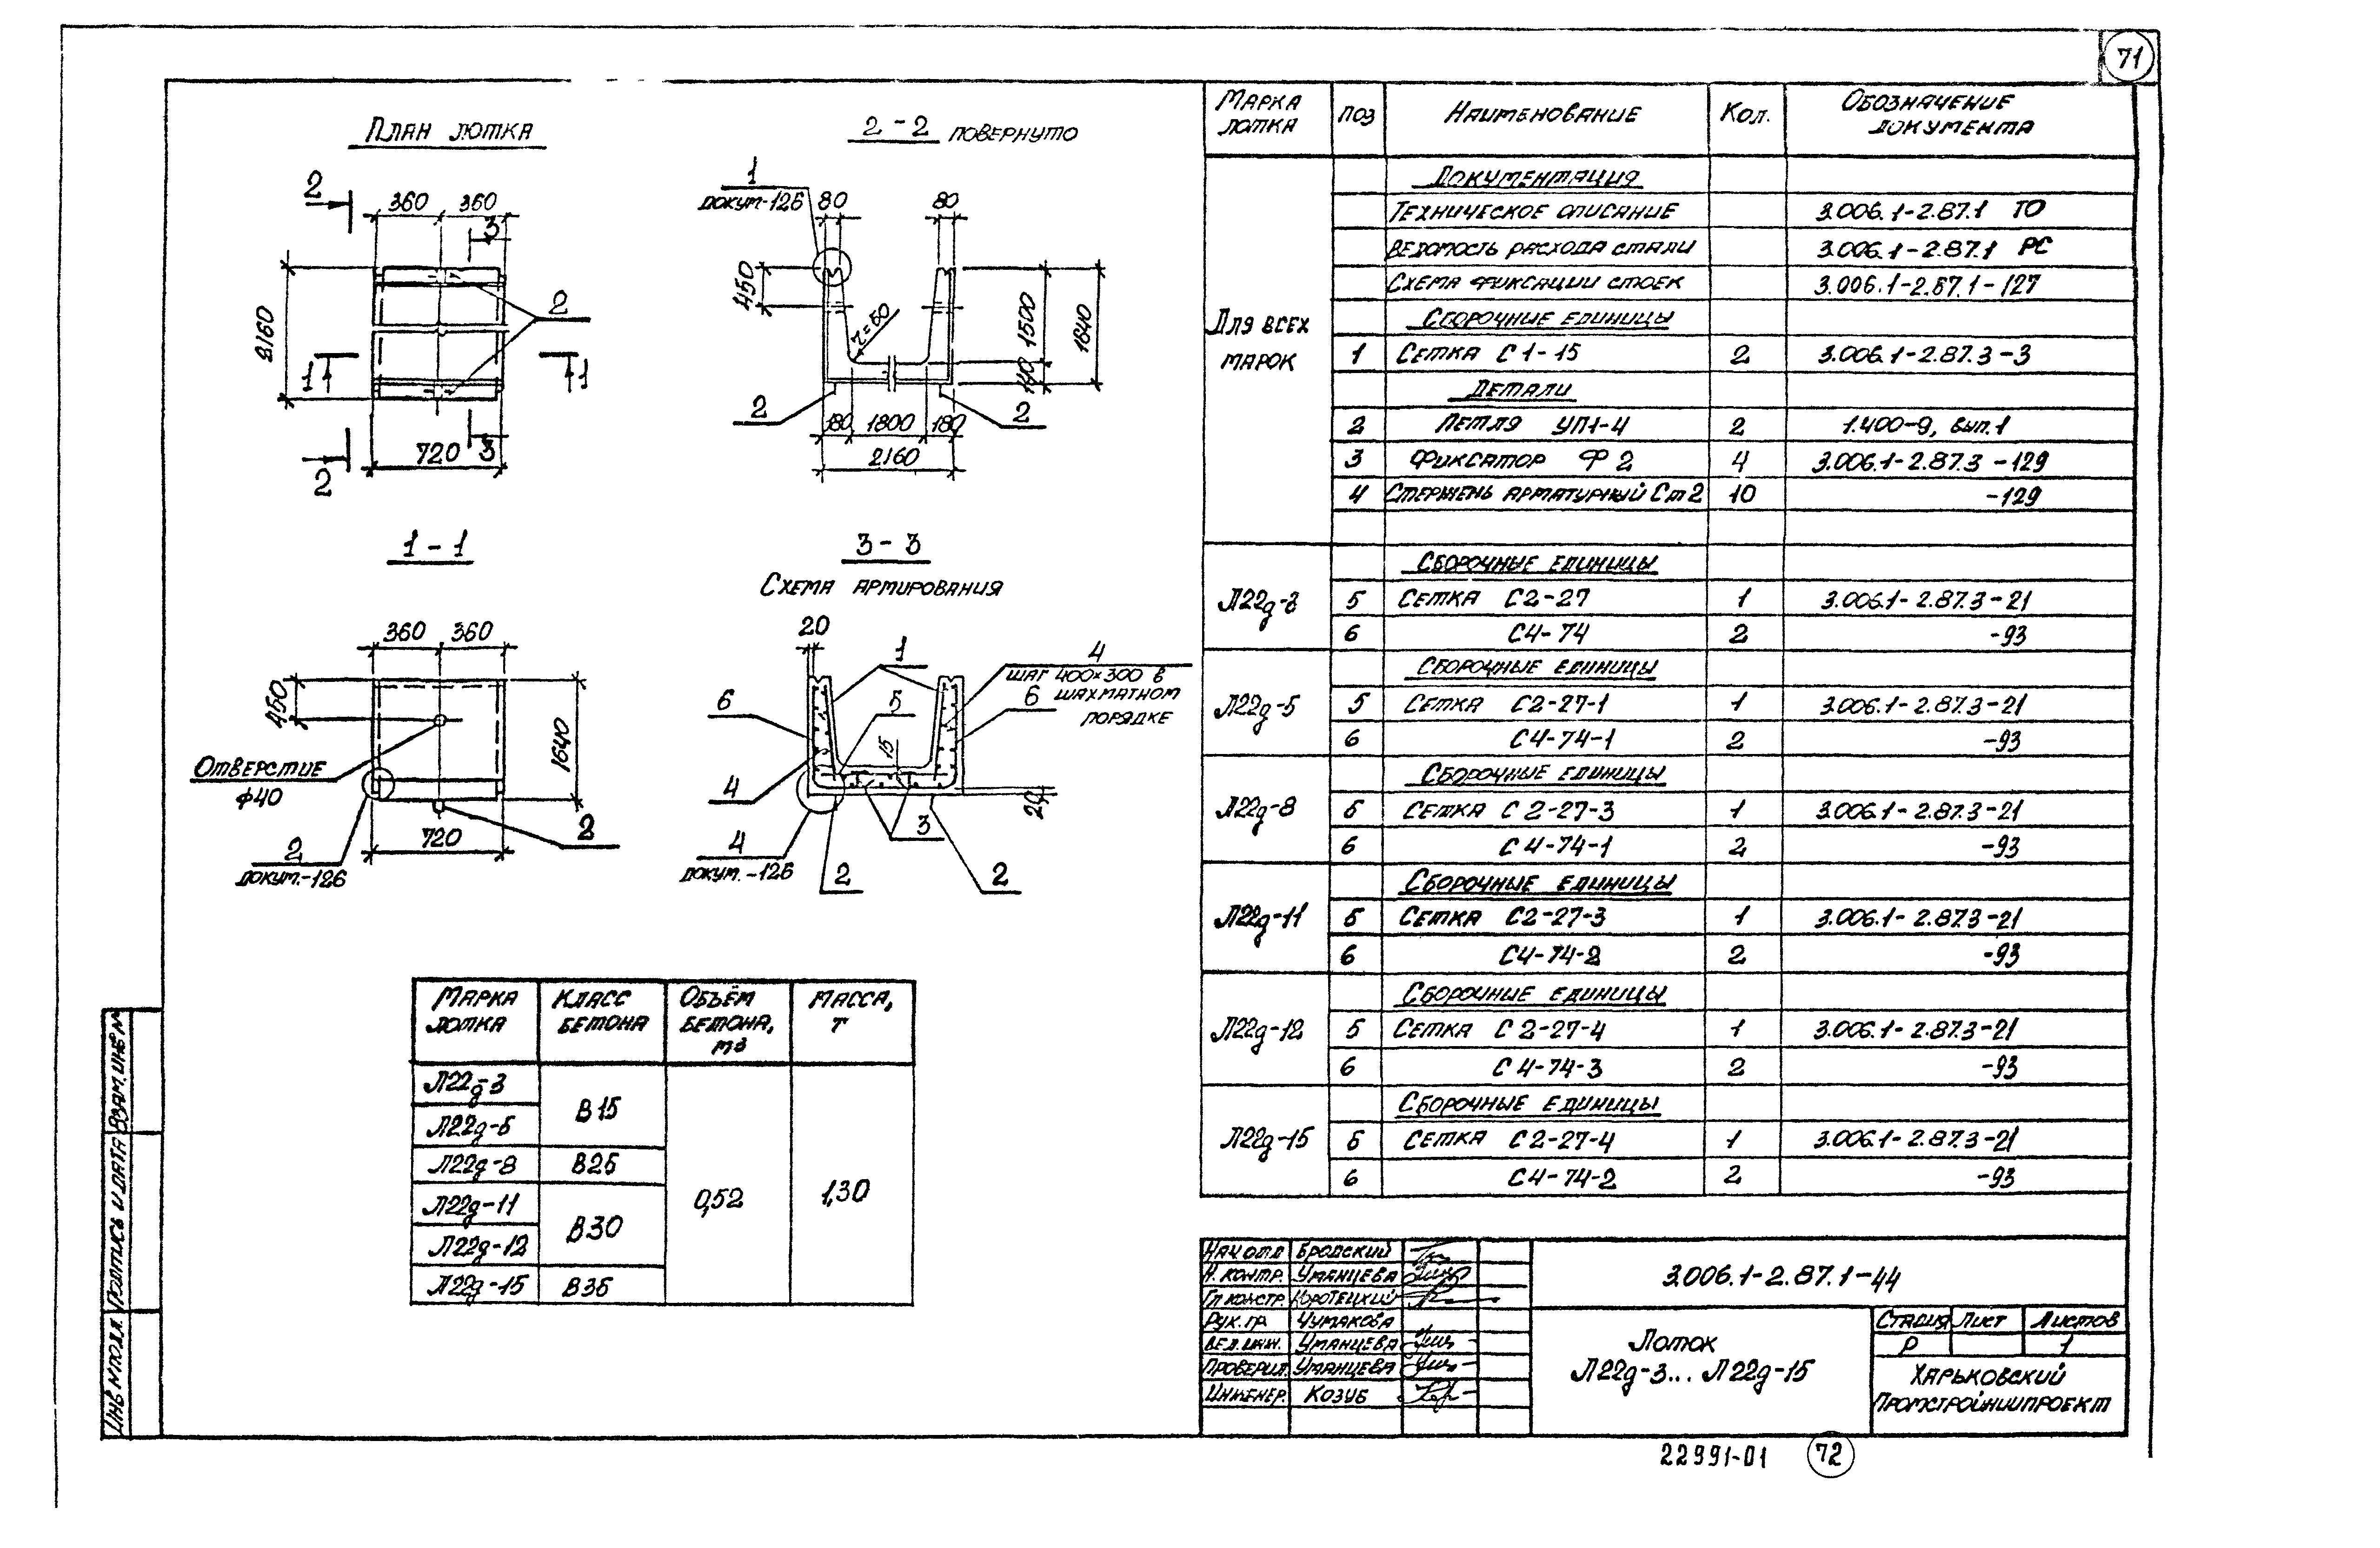 71
План лотка
2
360 360
3
2160
2
1 1
720
3
2
2-2 повернуто
1
докум-126
80 80
450
r=50
1500
1640
140
2 2
180 1800 180
2160
1-1
360 360
450
1640
Отверстие
ф40
720
2
докум.-126
2
3-3
Схема армирования
20
1
4
шаг 400×300 в
шахматном
порядке
6 6
5
15
4
3
20
4
докум.-126
2 2
Марка лотка Класс бетона Объём бетона, м3 Масса, т
Л22д-3 В15 0,52 1,30
Л22д-5
Л22д-8 В25
Л22д-11 В30
Л22д-12
Л22д-15 В35
Марка лотка Поз Наименование Кол. Обозначение документа
Для всех марок
Документация
Техническое описание 3.006.1-2.87.1 ТО
Ведомость расхода стали 3.006.1-2.87.1 РС
Схема фиксации стоек 3.006.1-2.87.1-127
Сборочные единицы
1 Сетка С1-15 2 3.006.1-2.87.3-3
Детали
2 Петля УП1-4 2 1.400-9, вып.1
3 Фиксатор Ф2 4 3.006.1-2.87.3-129
4 Стержень арматурный Ст2 10 -129
Сборочные единицы
Л22д-3 5 Сетка С2-27 1 3.006.1-2.87.3-21
6 С4-74 2 -93
Сборочные единицы
Л22д-5 5 Сетка С2-27-1 1 3.006.1-2.87.3-21
6 С4-74-1 2 -93
Сборочные единицы
Л22д-8 5 Сетка С2-27-3 1 3.006.1-2.87.3-21
6 С4-74-1 2 -93
Сборочные единицы
Л22д-11 5 Сетка С2-27-3 1 3.006.1-2.87.3-21
6 С4-74-2 2 -93
Сборочные единицы
Л22д-12 5 Сетка С2-27-4 1 3.006.1-2.87.3-21
6 С4-74-3 2 -93
Сборочные единицы
Л22д-15 5 Сетка С2-27-4 1 3.006.1-2.87.3-21
6 С4-74-2 2 -93
Нач отд Бродский
Н. контр. Уманцева
Гл констр. Коротецкий
Рук. гр Чумакова
Вед. инж. Уманцева
Проверил. Уманцева
Инженер. Козуб
3.006.1-2.87.1-44
Лоток
Л22д-3... Л22д-15
Стадия Лист Листов
Р 1
Харьковский
Промстройниипроект
Инв № подл. Подпись и дата Взам. инв №
22991-01 72